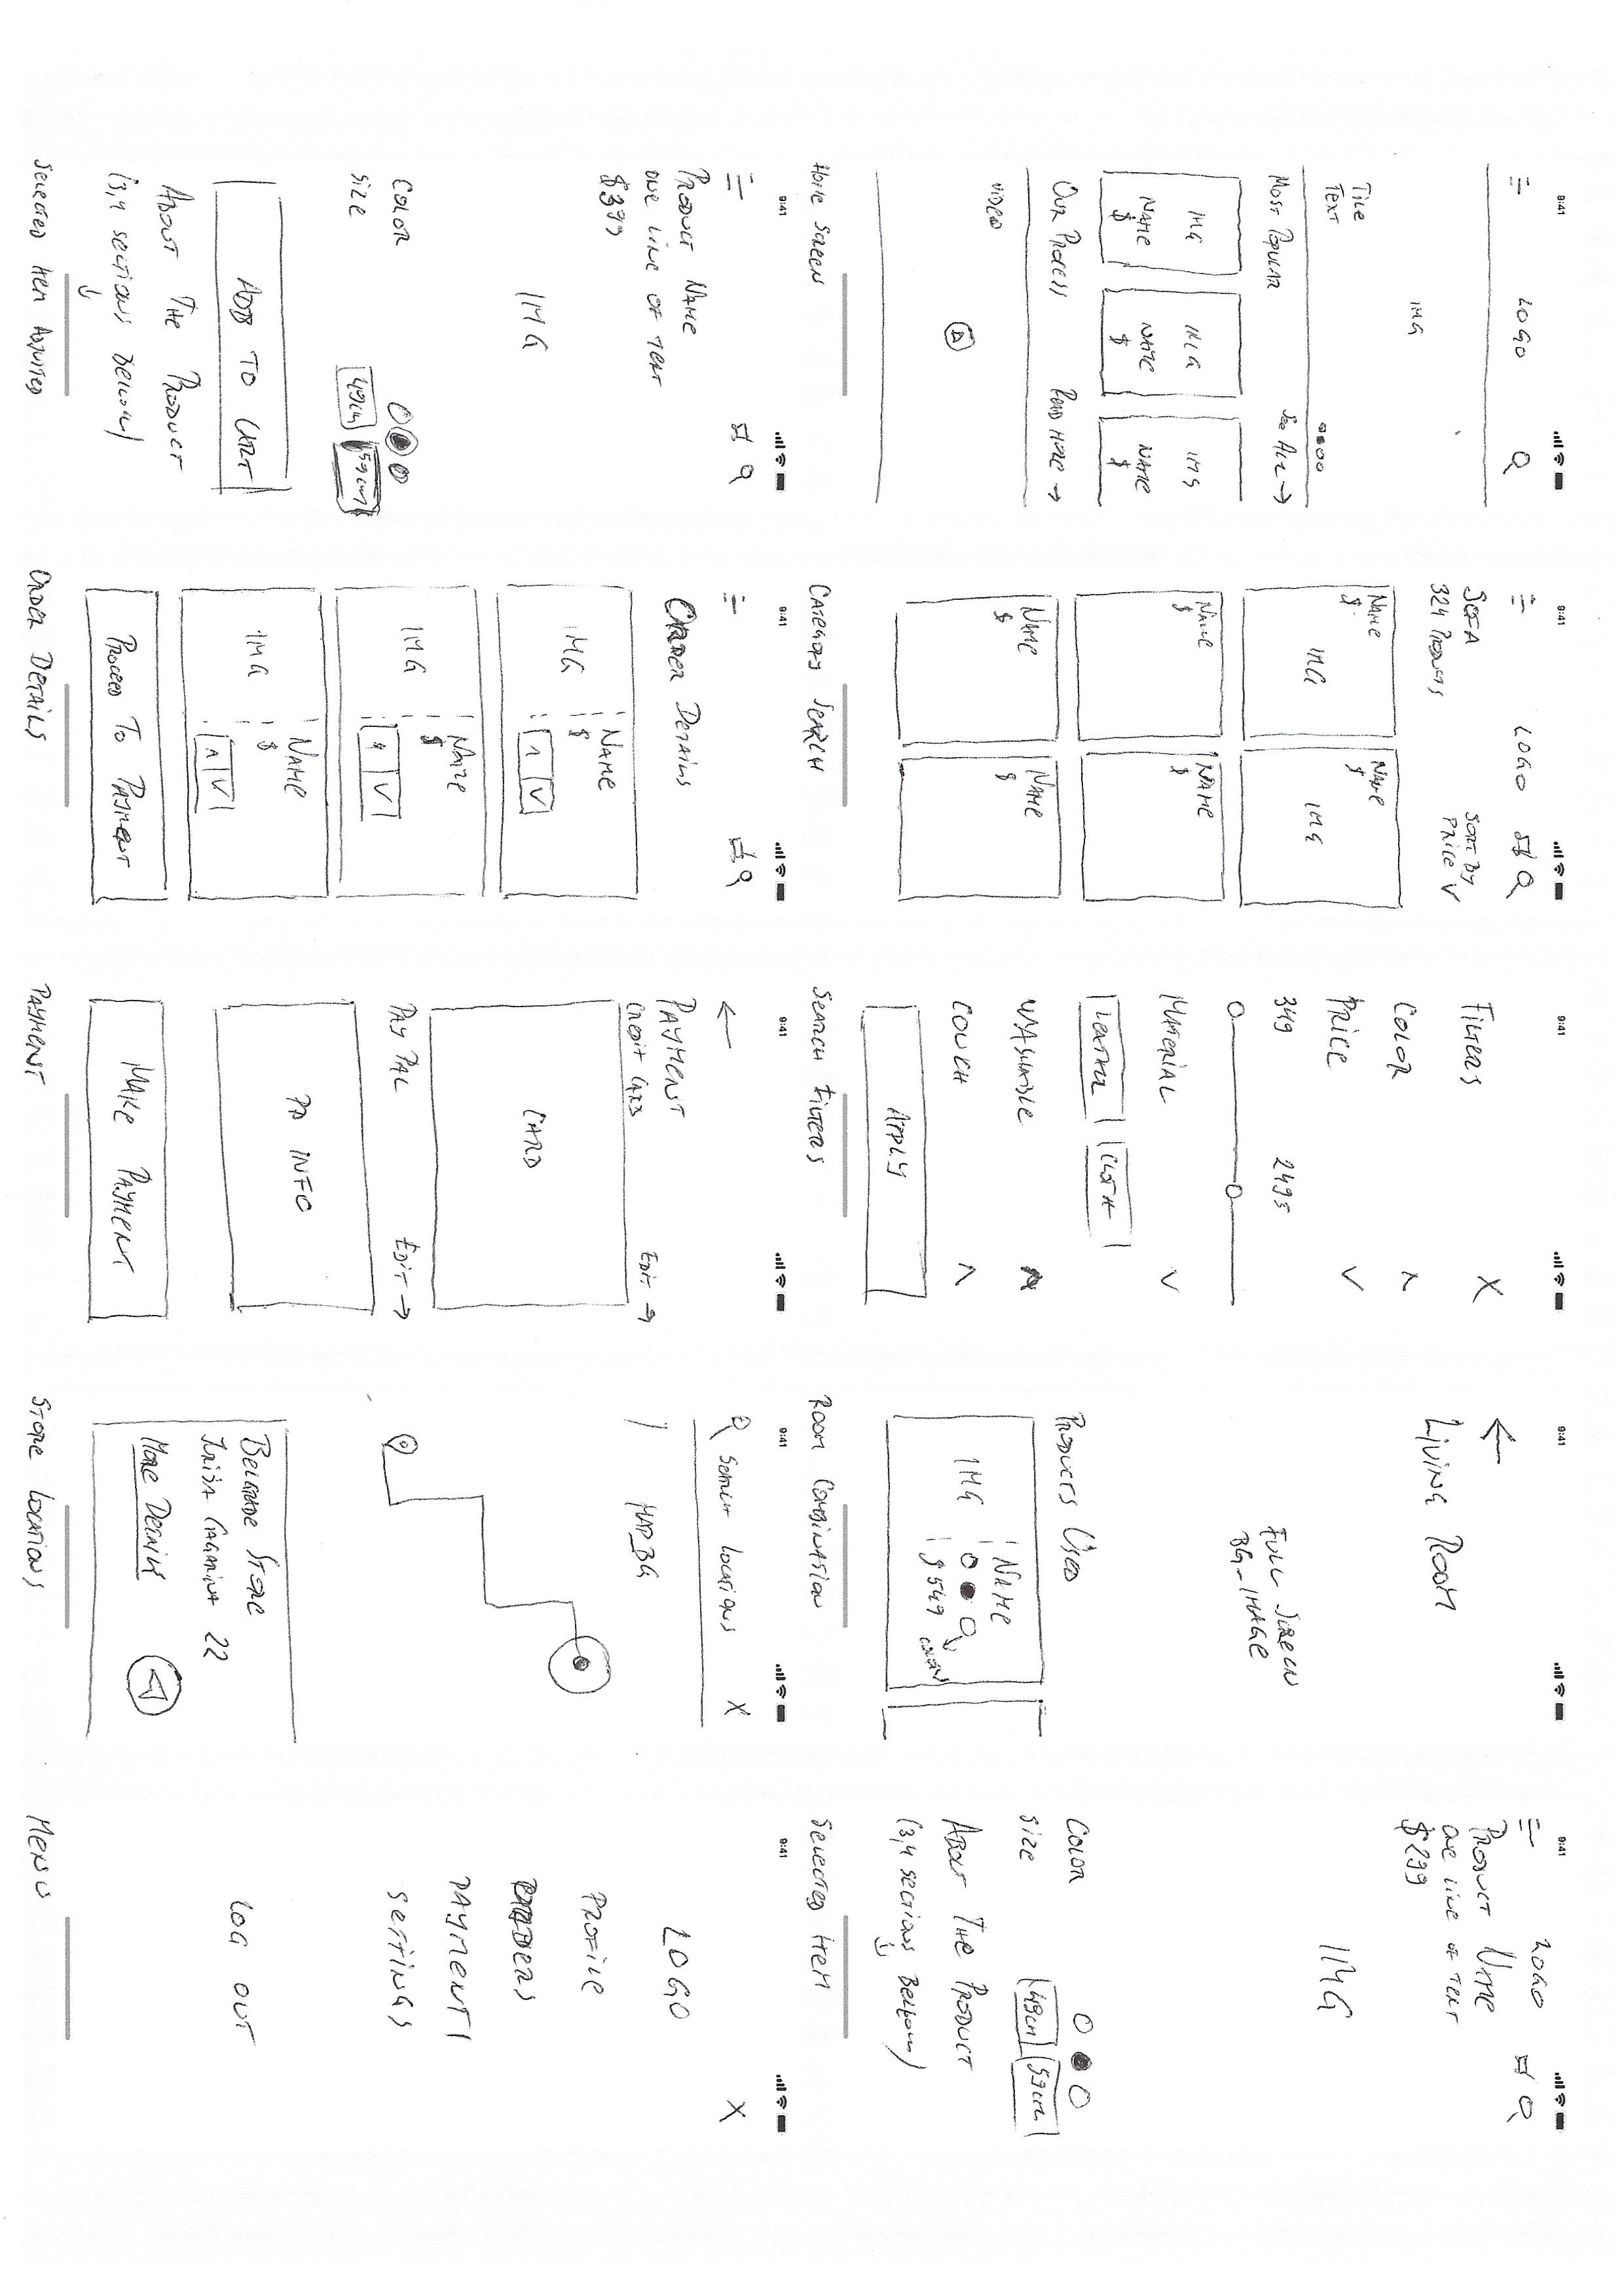 9:41
LOGO
IMG
Title
Text
Most Popular
See All →
IMG
NAME
$
IMG
NAME
$
IMG
NAME
$
Our Process
Read More →
VIDEO
Home Screen
9:41
LOGO
SOFA
324 Products
SORT BY
PRICE
NAME
$
IMG
NAME
$
IMG
NAME
$
NAME
$
NAME
$
NAME
$
Category Search
9:41
Filters
X
COLOR
PRICE
349
2495
MATERIAL
LEATHER
CLOTH
WASHABLE
COUCH
APPLY
Search Filters
9:41
←
Living Room
FULL SCREEN
BG_IMAGE
Products Used
IMG
NAME
$549
COLORS
Room Combination
9:41
LOGO
Product Name
ONE LINE OF TEXT
$299
IMG
COLOR
Size
49cm
59cm
About The Product
(3,4 sections Bellow)
↓
Selected Item
9:41
Product Name
ONE LINE OF TEXT
$399
IMG
COLOR
Size
49cm
59cm
ADD TO CART
About The Product
(3,4 sections Bellow)
↓
Selected Item Adjusted
9:41
Order Details
IMG
NAME
$
1
IMG
NAME
$
IMG
NAME
$
1
Proceed To Payment
Order Details
9:41
←
Payment
Credit Card
Edit →
CARD
Pay Pal
Edit →
PP INFO
Make Payment
Payment
9:41
Search Locations
X
MAP_BG
Belgrade Store
Jurija Gagarina 22
More Details
Store Locations
9:41
X
LOGO
PROFILE
ORDERS
PAYMENT
SETTINGS
LOG OUT
Menu